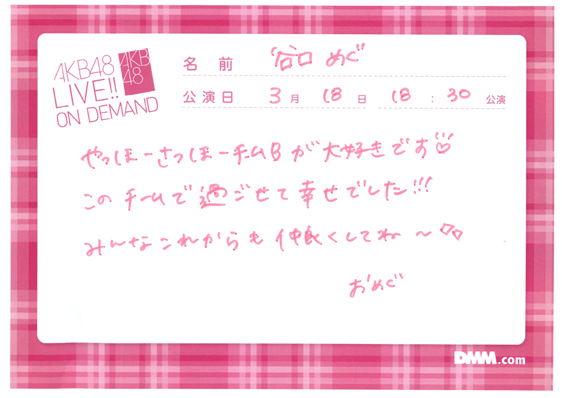 AKB48
LIVE!!
ON DEMAND
AKB
48
名前 谷口 めぐ
公演日 3月 18日 18:30 公演
やっほーさっほーチームBが大好きです
このチームで過ごせて幸せでした!!!
みんなこれからも仲良くしてね〜
おめぐ
DMM.com